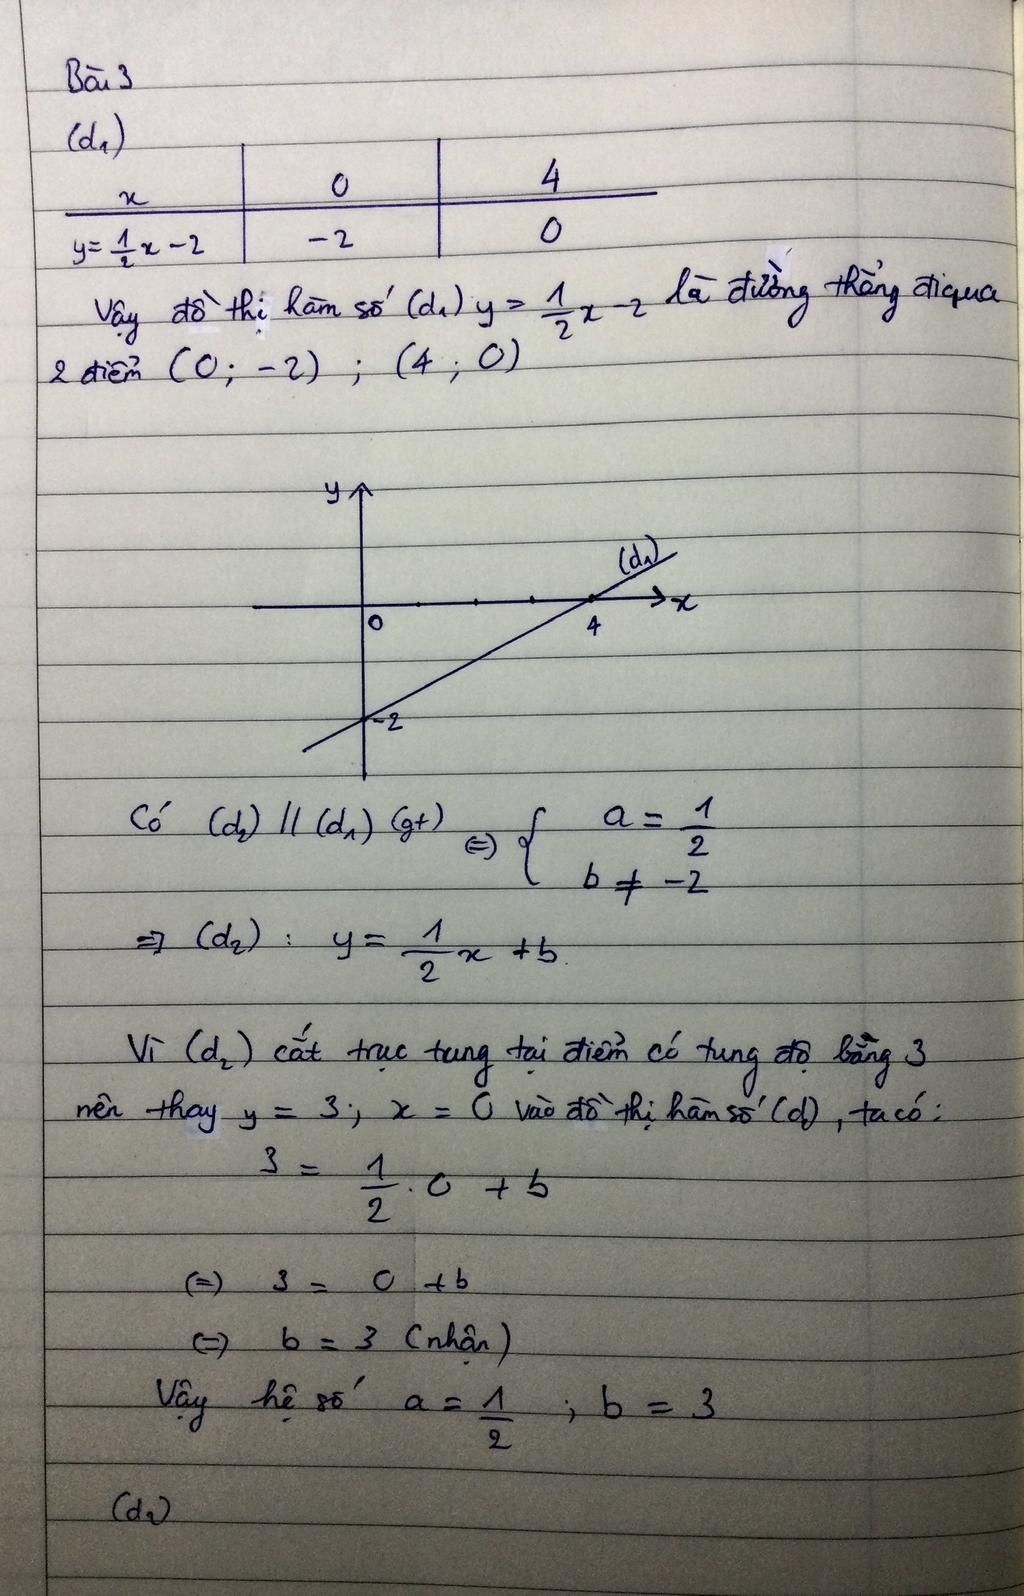 Bài 3
(d₁)
x 0 4
y = 1/2 x - 2 -2 0
Vậy đồ thị hàm số (d₁) y = 1/2 x - 2 là đường thẳng đi qua
2 điểm (0; -2) ; (4 ; 0)
y
(d₁)
0 4 x
-2
Có (d₂) // (d₁) (gt) (=) { a = 1/2
b ≠ -2
=> (d₂) : y = 1/2 x + b
Vì (d₂) cắt trục tung tại điểm có tung độ bằng 3
nên thay y = 3; x = 0 vào đồ thị hàm số (d), ta có:
3 = 1/2 . 0 + b
(=) 3 = 0 + b
(=) b = 3 (nhận)
Vậy hệ số a = 1/2 ; b = 3
(d₂)